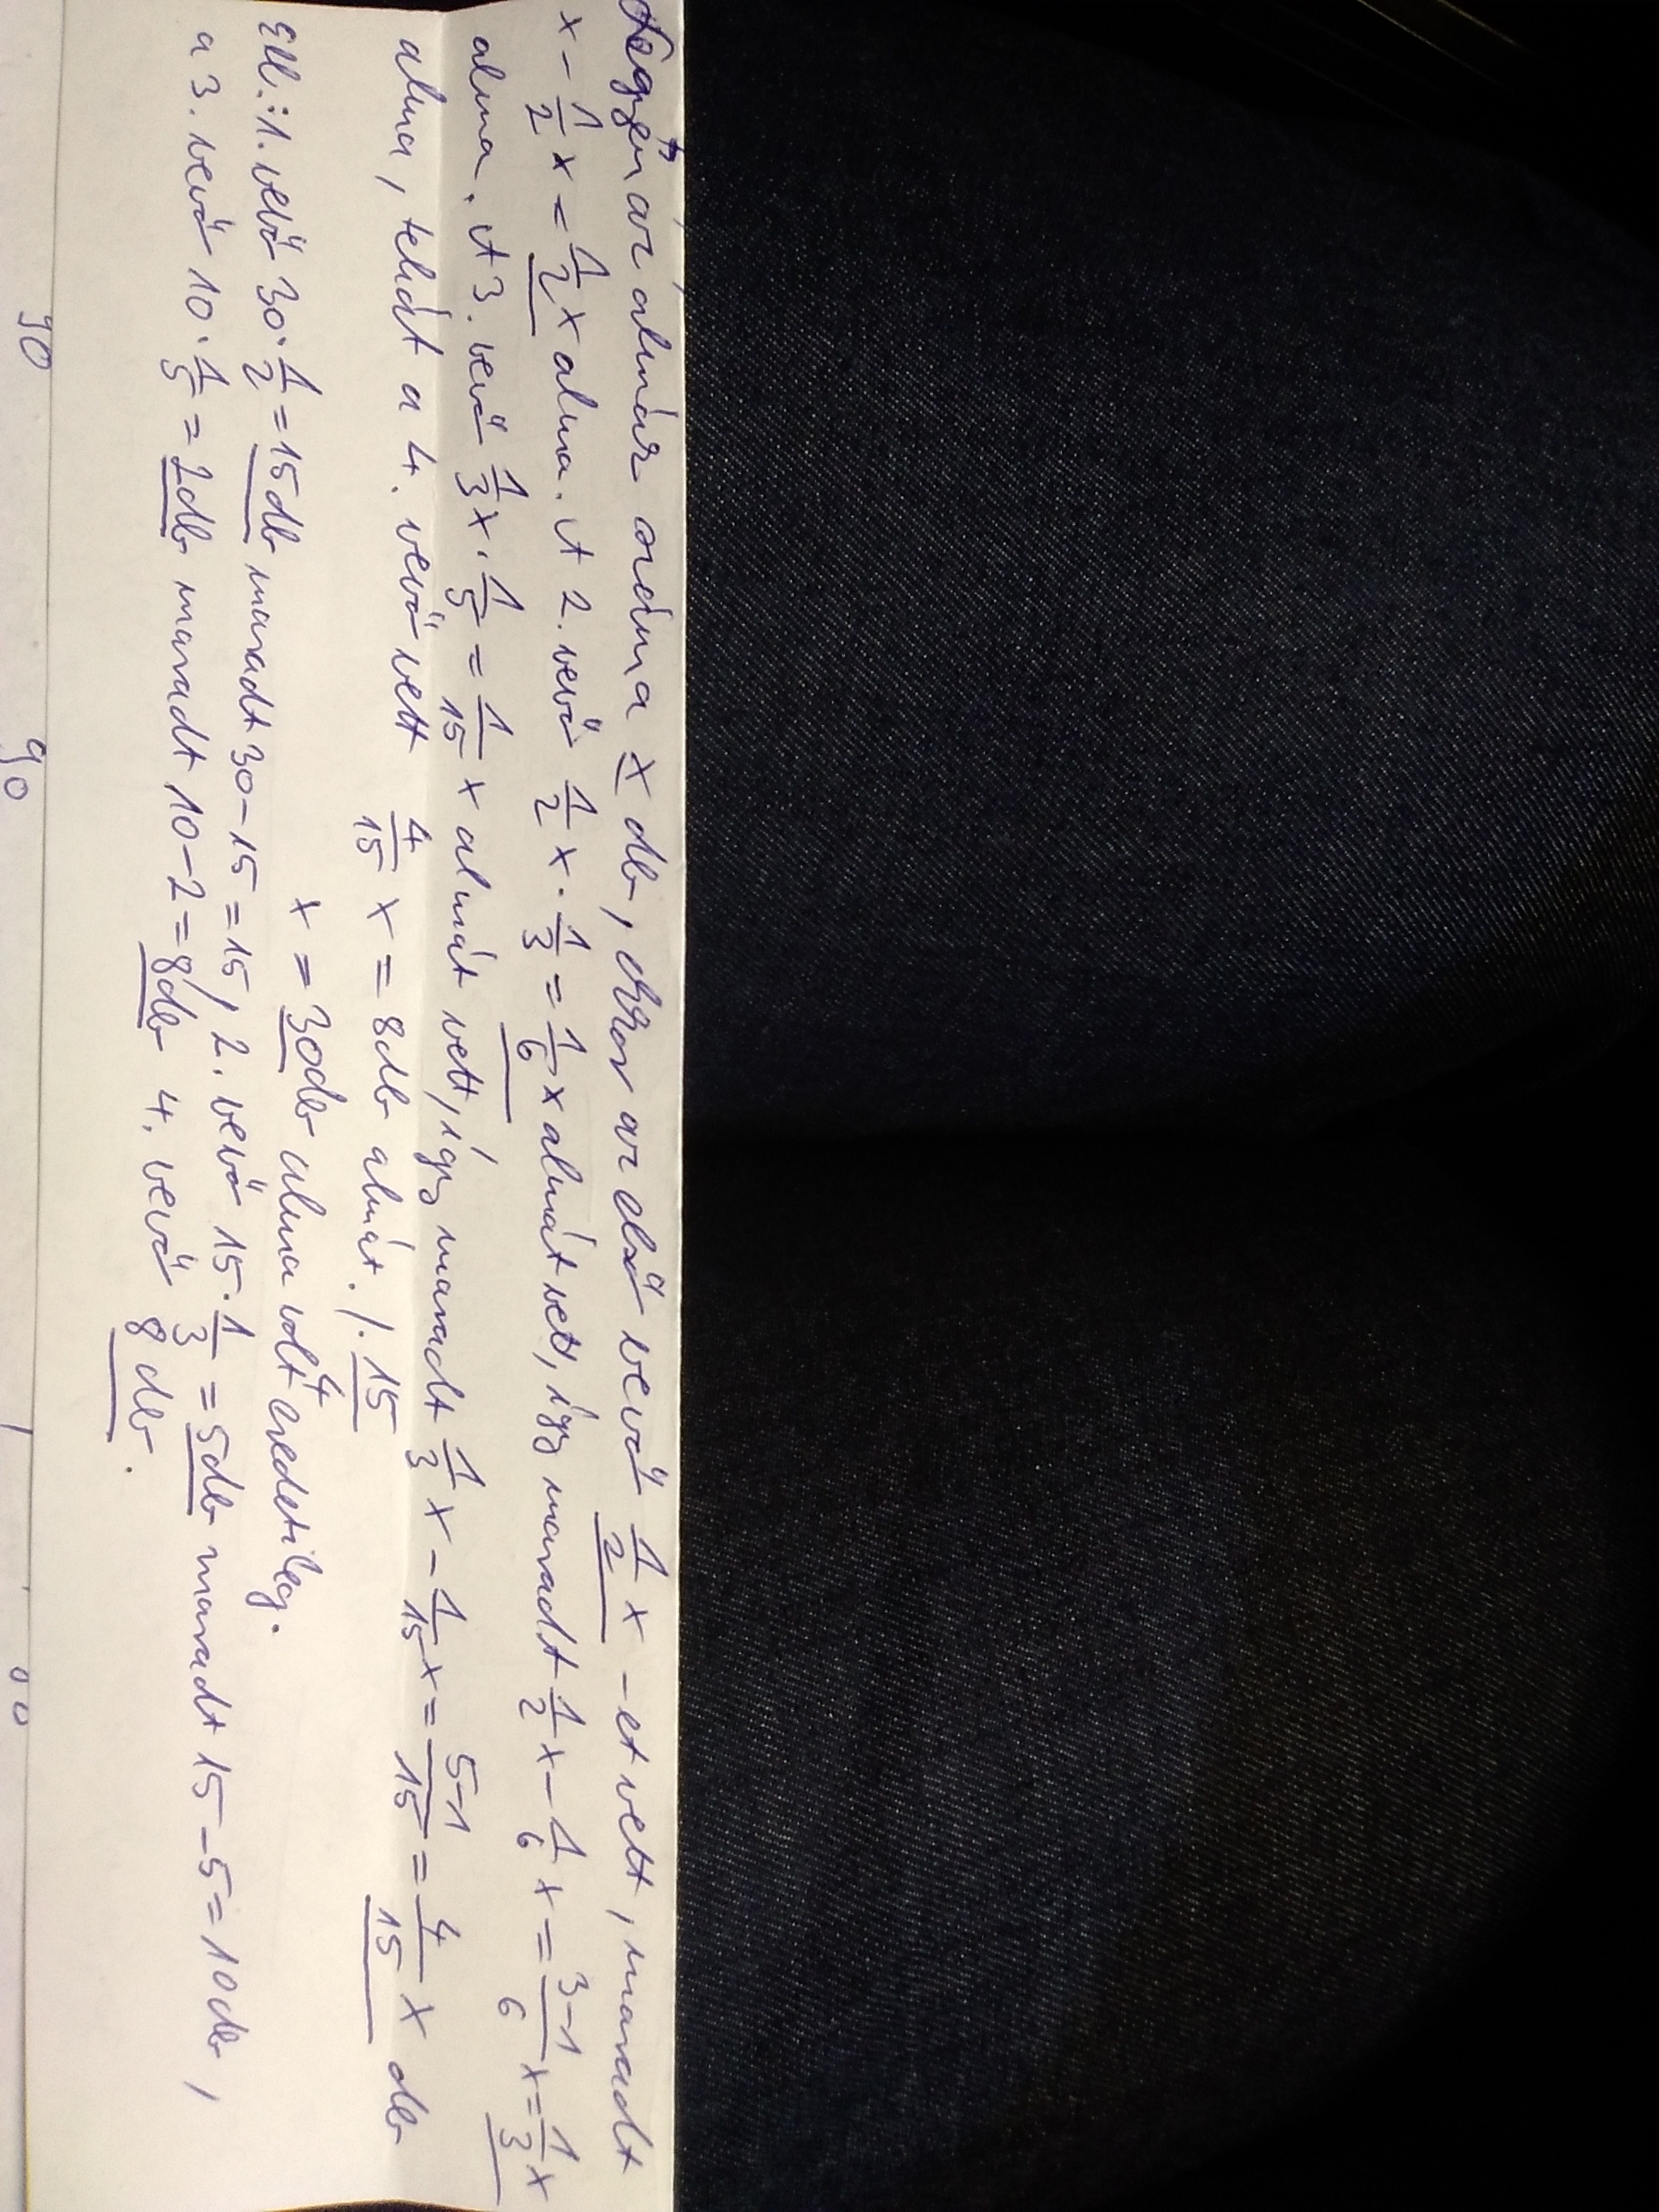 Legyen az almák száma x db, ekkor az első vevő 1/2 x -et vett, maradt
x - 1/2 x = 1/2 x alma. A 2. vevő 1/2 x · 1/3 = 1/6 x almát vett, így maradt 1/2 x - 1/6 x = (3-1)/6 x = 1/3 x
alma. A 3. vevő 1/3 x · 1/5 = 1/15 x almát vett, így maradt 1/3 x - 1/15 x = (5-1)/15 = 4/15 x db
alma, tehát a 4. vevő vett 4/15 x = 8db almát. /· 15/4
x = 30db alma volt eredetileg.
Ell.: 1. vevő 30 · 1/2 = 15db maradt 30-15=15, 2. vevő 15 · 1/3 = 5db maradt 15-5=10db,
a 3. vevő 10 · 1/5 = 2db maradt 10-2=8db 4. vevő 8 db.
90 90